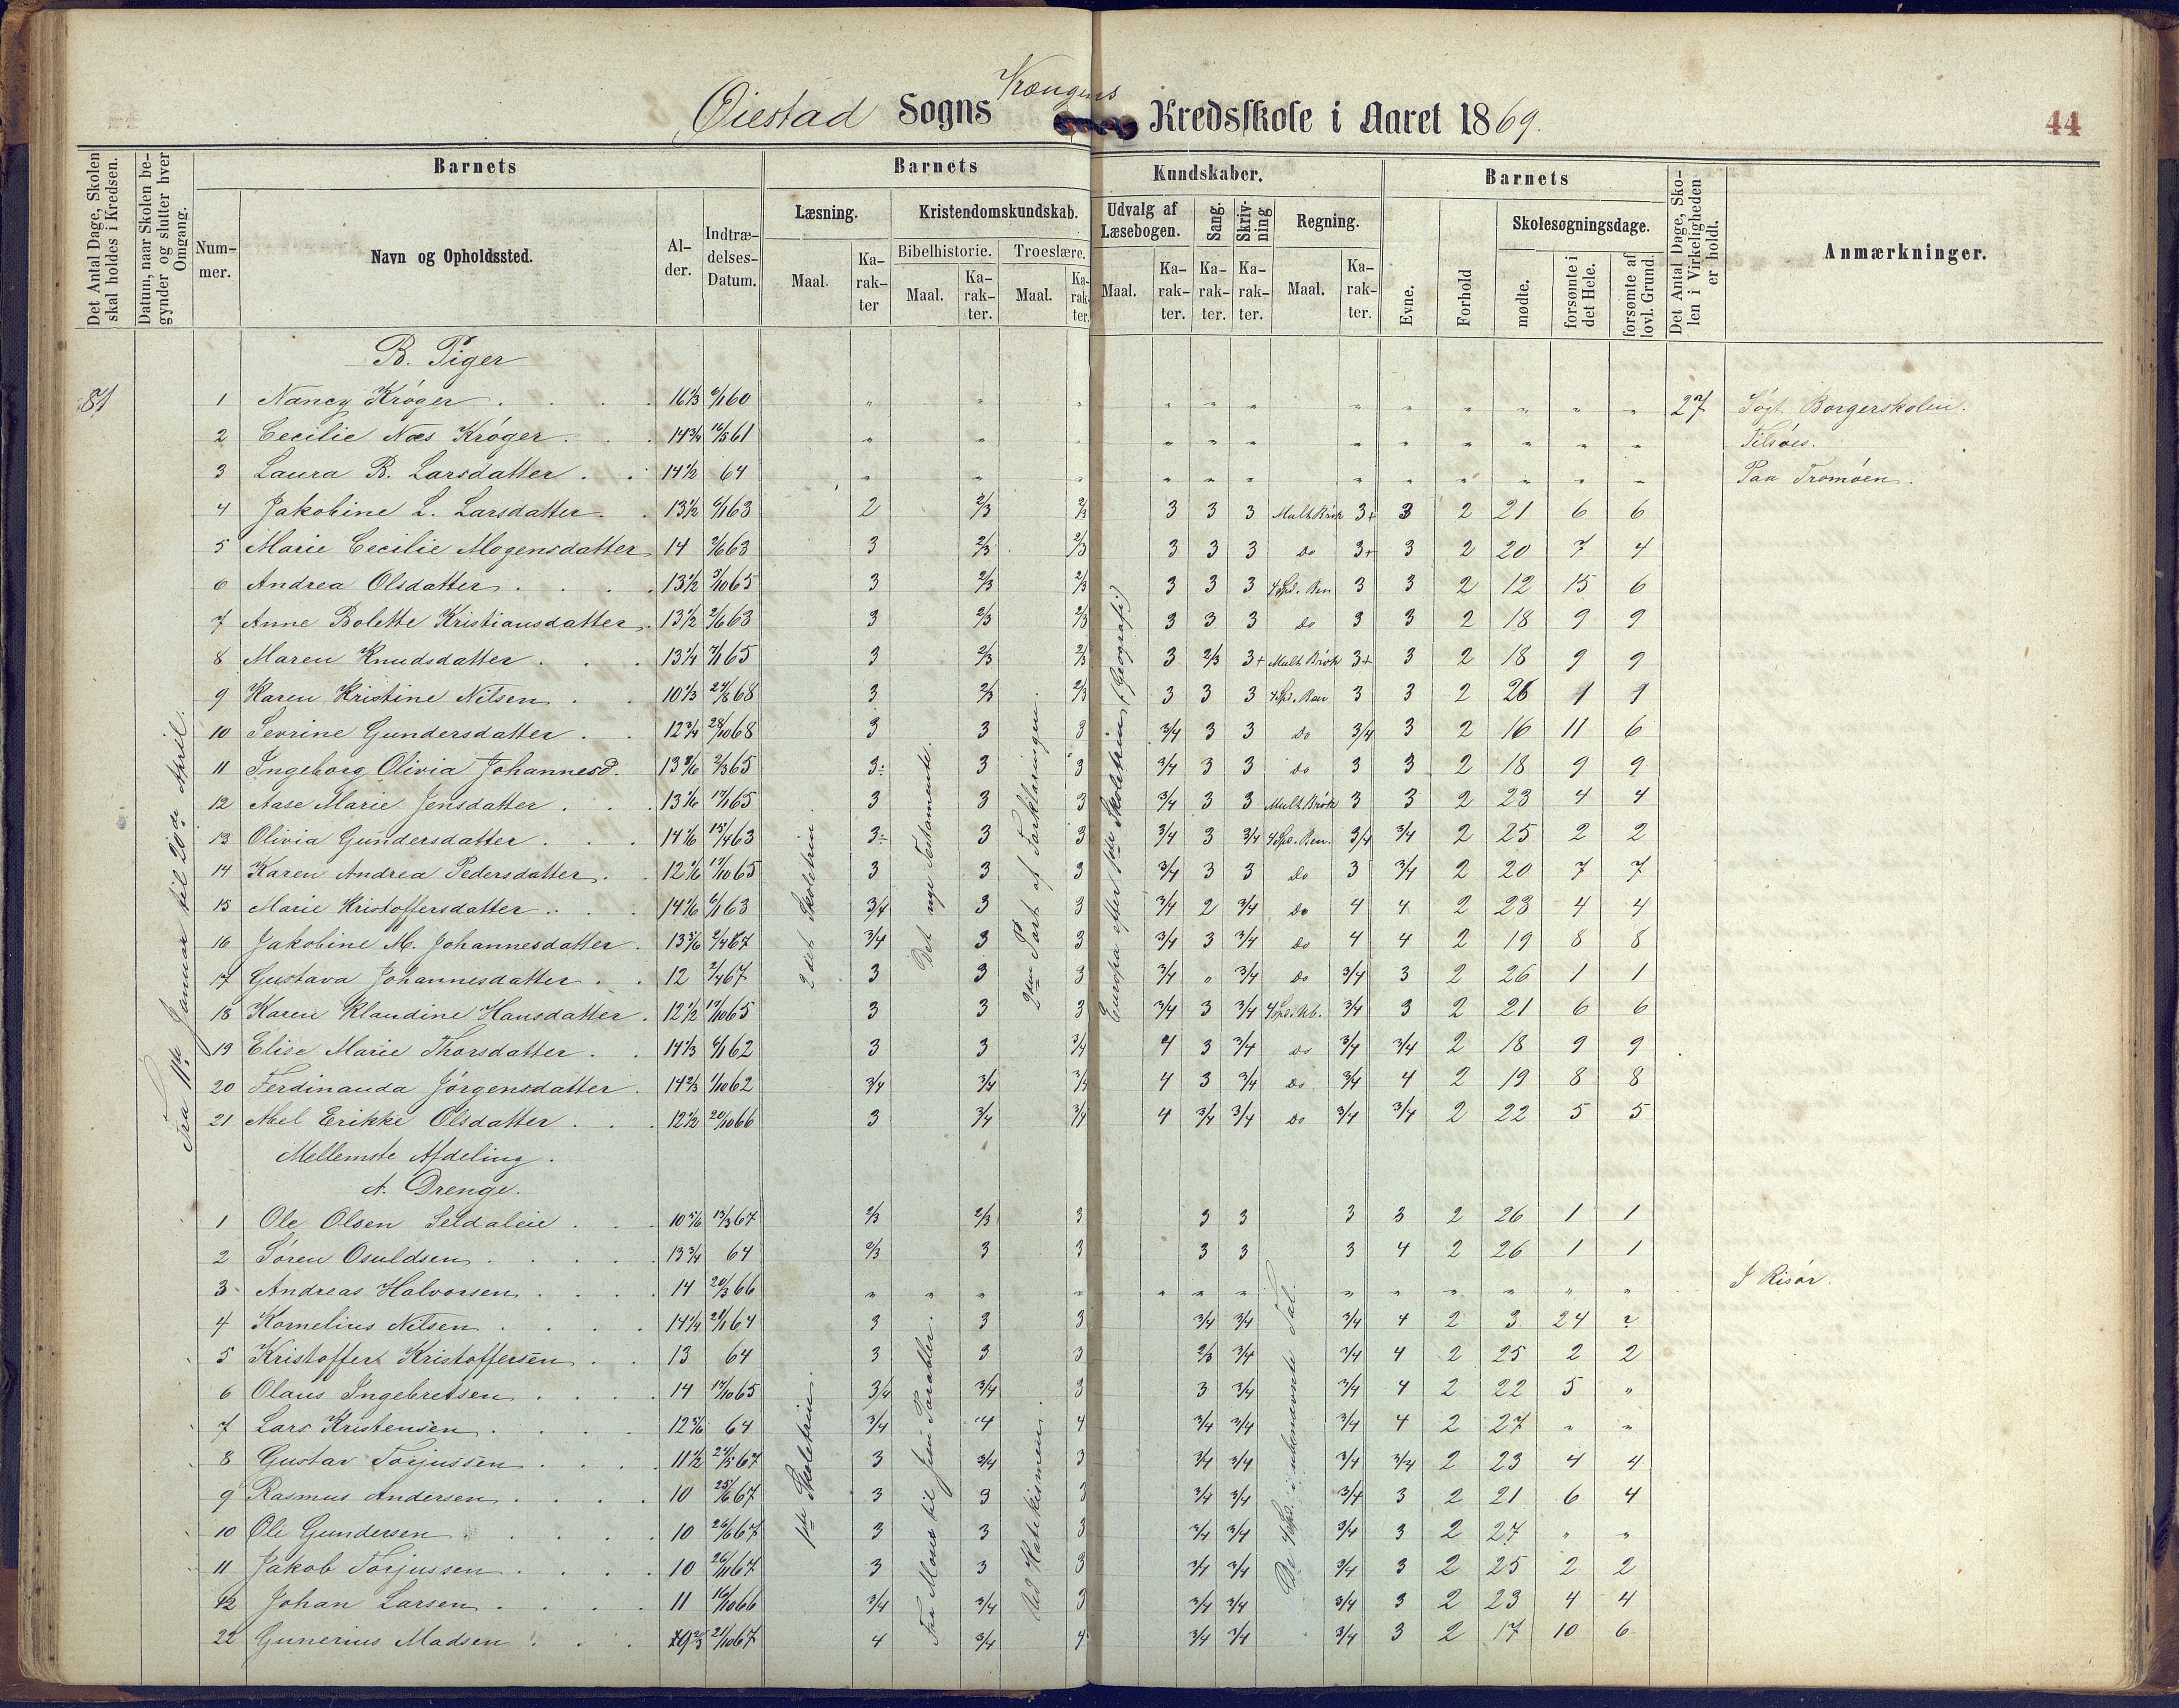 Øiestad Sogns Krængens Kredsskole i Aaret 1869.
44
Det Antal Dage, Skolen skal holdes i Kredsen.
Datum, naar Skolen begynder og slutter hver Omgang.
Barnets
Nummer.
Navn og Opholdssted.
Alder.
Indtrædelses-Datum.
Barnets Kundskaber.
Læsning.
Maal.
Karakter
Kristendomskundskab.
Bibelhistorie.
Maal.
Karakter.
Troeslære.
Maal.
Karakter.
Udvalg af Læsebogen.
Maal.
Karakter.
Sang.
Karakter.
Skrivning
Karakter.
Regning.
Maal.
Karakter.
Barnets
Evne.
Forhold
Skolesøgningsdage.
mødte.
forsømte i det Hele.
forsømte af lovl. Grund.
Det Antal Dage, Skolen i Virkeligheden er holdt.
Anmærkninger.
81
Fra 11te Januar til 20de April.
B. Piger
1 Nancy Krøger 16 1/3 6/1 60 " " " " " " " " " " " " 27 Søgt Borgerskolen.
2 Cecilie Næs Krøger 14 3/4 16/5 61 " " " " " " " " " " " " Tilsøes.
3 Laura B. Larsdatter 14 1/2 64 " " " " " " " " " " " " Paa Tromøen.
4 Jakobine L. Larsdatter 13 1/2 6/1 63 2 2/3 2/3 3 3 3 Mult Brøk 3+ 3 2 21 6 6
5 Marie Cecilie Mogensdatter 14 2/6 63 3 2/3 2/3 3 3 3 Do 3+ 3 2 20 7 4
6 Andrea Olsdatter 13 1/2 3/10 65 3 2/3 2/3 3 3 3 4 Spd. Ben 3 3 2 12 15 6
7 Anne Bolette Kristiansdatter 13 1/2 2/6 63 3 2/3 2/3 3 3 3 Do 3 3 2 18 9 9
8 Maren Knudsdatter 13 1/4 7/1 65 3 2/3 2/3 3 2/3 3+ Mult Brøk 3+ 3 2 18 9 9
9 Karen Kristine Nilsen 10 1/3 24/8 68 3 2/3 2/3 3 3 3 4 Spd. Ben 3 3 2 26 1 1
10 Sevrine Gundersdatter 12 3/4 28/10 68 3 3 3 3/4 3 3 Do 3/4 3 2 16 11 6
11 Ingeborg Olivia Johannesd. 13 5/6 2/3 65 3÷ 3 3 3/4 3 3 Do 3 3 2 18 9 9
12 Aase Marie Jensdatter 13 1/6 17/1 65 3 3 3 3/4 3 3 Mult Brøk 3 3 2 23 4 4
13 Olivia Gundersdatter 14 1/6 15/4 63 3÷ 3 3 3/4 3 3/4 4 Spd. Ben. 3/4 3/4 2 25 2 2
14 Karen Andrea Pedersdatter 12 1/6 17/10 65 3 3 3 3/4 3 3 Do 3 3/4 2 20 7 7
15 Marie Kristoffersdatter 14 1/6 6/1 63 3/4 3 3 3/4 2 3/4 Do 4 4 2 23 4 4
16 Jakobine M. Johannesdatter 13 5/6 2/4 67 3/4 3 3 3/4 3 3/4 Do 4 4 2 19 8 8
17 Gustava Johannesdatter 12 2/4 67 3 3 3 3/4 " 3/4 Do 3/4 3 2 26 1 1
18 Karen Klaudine Hansdatter 12 1/2 17/10 65 3 3 3 3/4 3 3/4 3/4 3 2 21 6 6
19 Elise Marie Thorsdatter 14 1/3 6/1 62 3 3 3/4 4 3 3/4 Do 3/4 3/4 2 18 9 9
20 Ferdinanda Jørgensdatter 14 2/3 1/10 62 3/4 3/4 3/4 4 3 3/4 Do 3/4 4 2 19 8 8
21 Abel Erikke Olsdatter 12 1/2 20/10 66 3 3/4 3/4 4 3/4 3/4 Do 3/4 3/4 2 22 5 5
2det Skoletrin
Det nye Testamente.
2den Part af Forklaringen.
Europa efter 1ste Skoletrin (Geografi)
Mellemste Afdeling.
A. Drenge.
1 Ole Olsen Seldaleie 10 5/6 13/3 67 2/3 2/3 3 3 3 3 3 2 26 1 1
2 Søren Osuldsen 13 3/4 64 2/3 3 3 3 3 3 4 2 26 1 1
3 Andreas Halvorsen 14 20/3 66 " " " " " " " " " " " " " I Risør.
4 Kornelius Nilsen 14 1/4 21/1 64 3 3 3 3/4 3/4 3/4 4 2 3 24 2
5 Kristoffer Kristoffersen 13 64 3 3 3 2/3 3/4 3/4 4 2 25 2 2
6 Olaus Ingebretsen 14 17/10 65 3/4 3/4 3 3 3/4 3/4 4 2 22 5 "
7 Lars Kristensen 12 5/6 64 3/4 4 4 3/4 3/4 3/4 4 2 27 " "
8 Gustav Torjussen 11 1/2 24/5 67 3 3/4 3 3/4 3/4 3/4 3/4 2 23 4 4
9 Rasmus Andersen 10 25/6 67 3 3 3 3/4 3/4 3/4 3 2 21 6 4
10 Ole Gundersen 10 26/6 67 3 3 3 3/4 3/4 3/4 3 2 27 " "
11 Jakob Torjussen 10 26/11 67 3 3 3 3/4 3/4 3/4 3 2 25 2 2
12 Johan Larsen 11 16/10 66 3/4 3/4 3 3/4 3/4 3/4 3 2 23 4 4
22 Gunerius Madsen 9 2/3 21/10 67 4 3/4 4 3/4 3/4 3/4 3 2 17 10 6
1ste Skoletrin.
Fra Moses til Jesu Parabler.
Ud Katekismen.
De 4 Spd. i ubenævnte Tal.